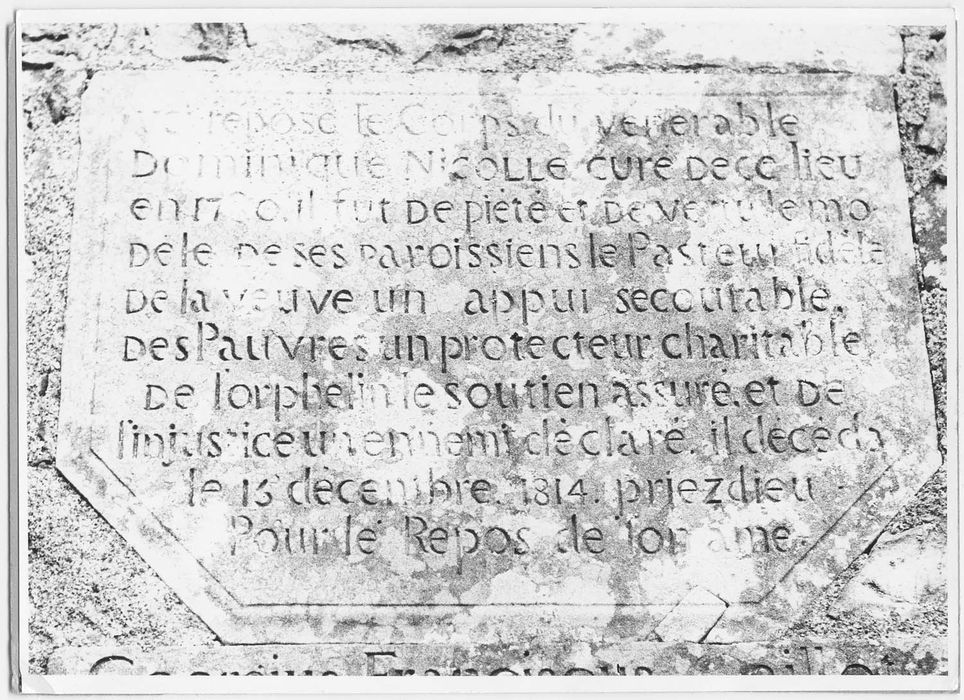 repose le Corps du venerable
Dominique NICOLLE CURE DE CE lieu
en il fut De piété et De vertu le mo-
dèle De ses paroissiens le Pasteur fidèle
De la veuve un appui secourable.
Des Pauvres un protecteur charitable
De lorphelin le soutien assuré. et De
linjustice un ennemi déclaré. il décéda
le décembre. 1814. priez dieu
Pour le Repos de son âme.
Franciscus